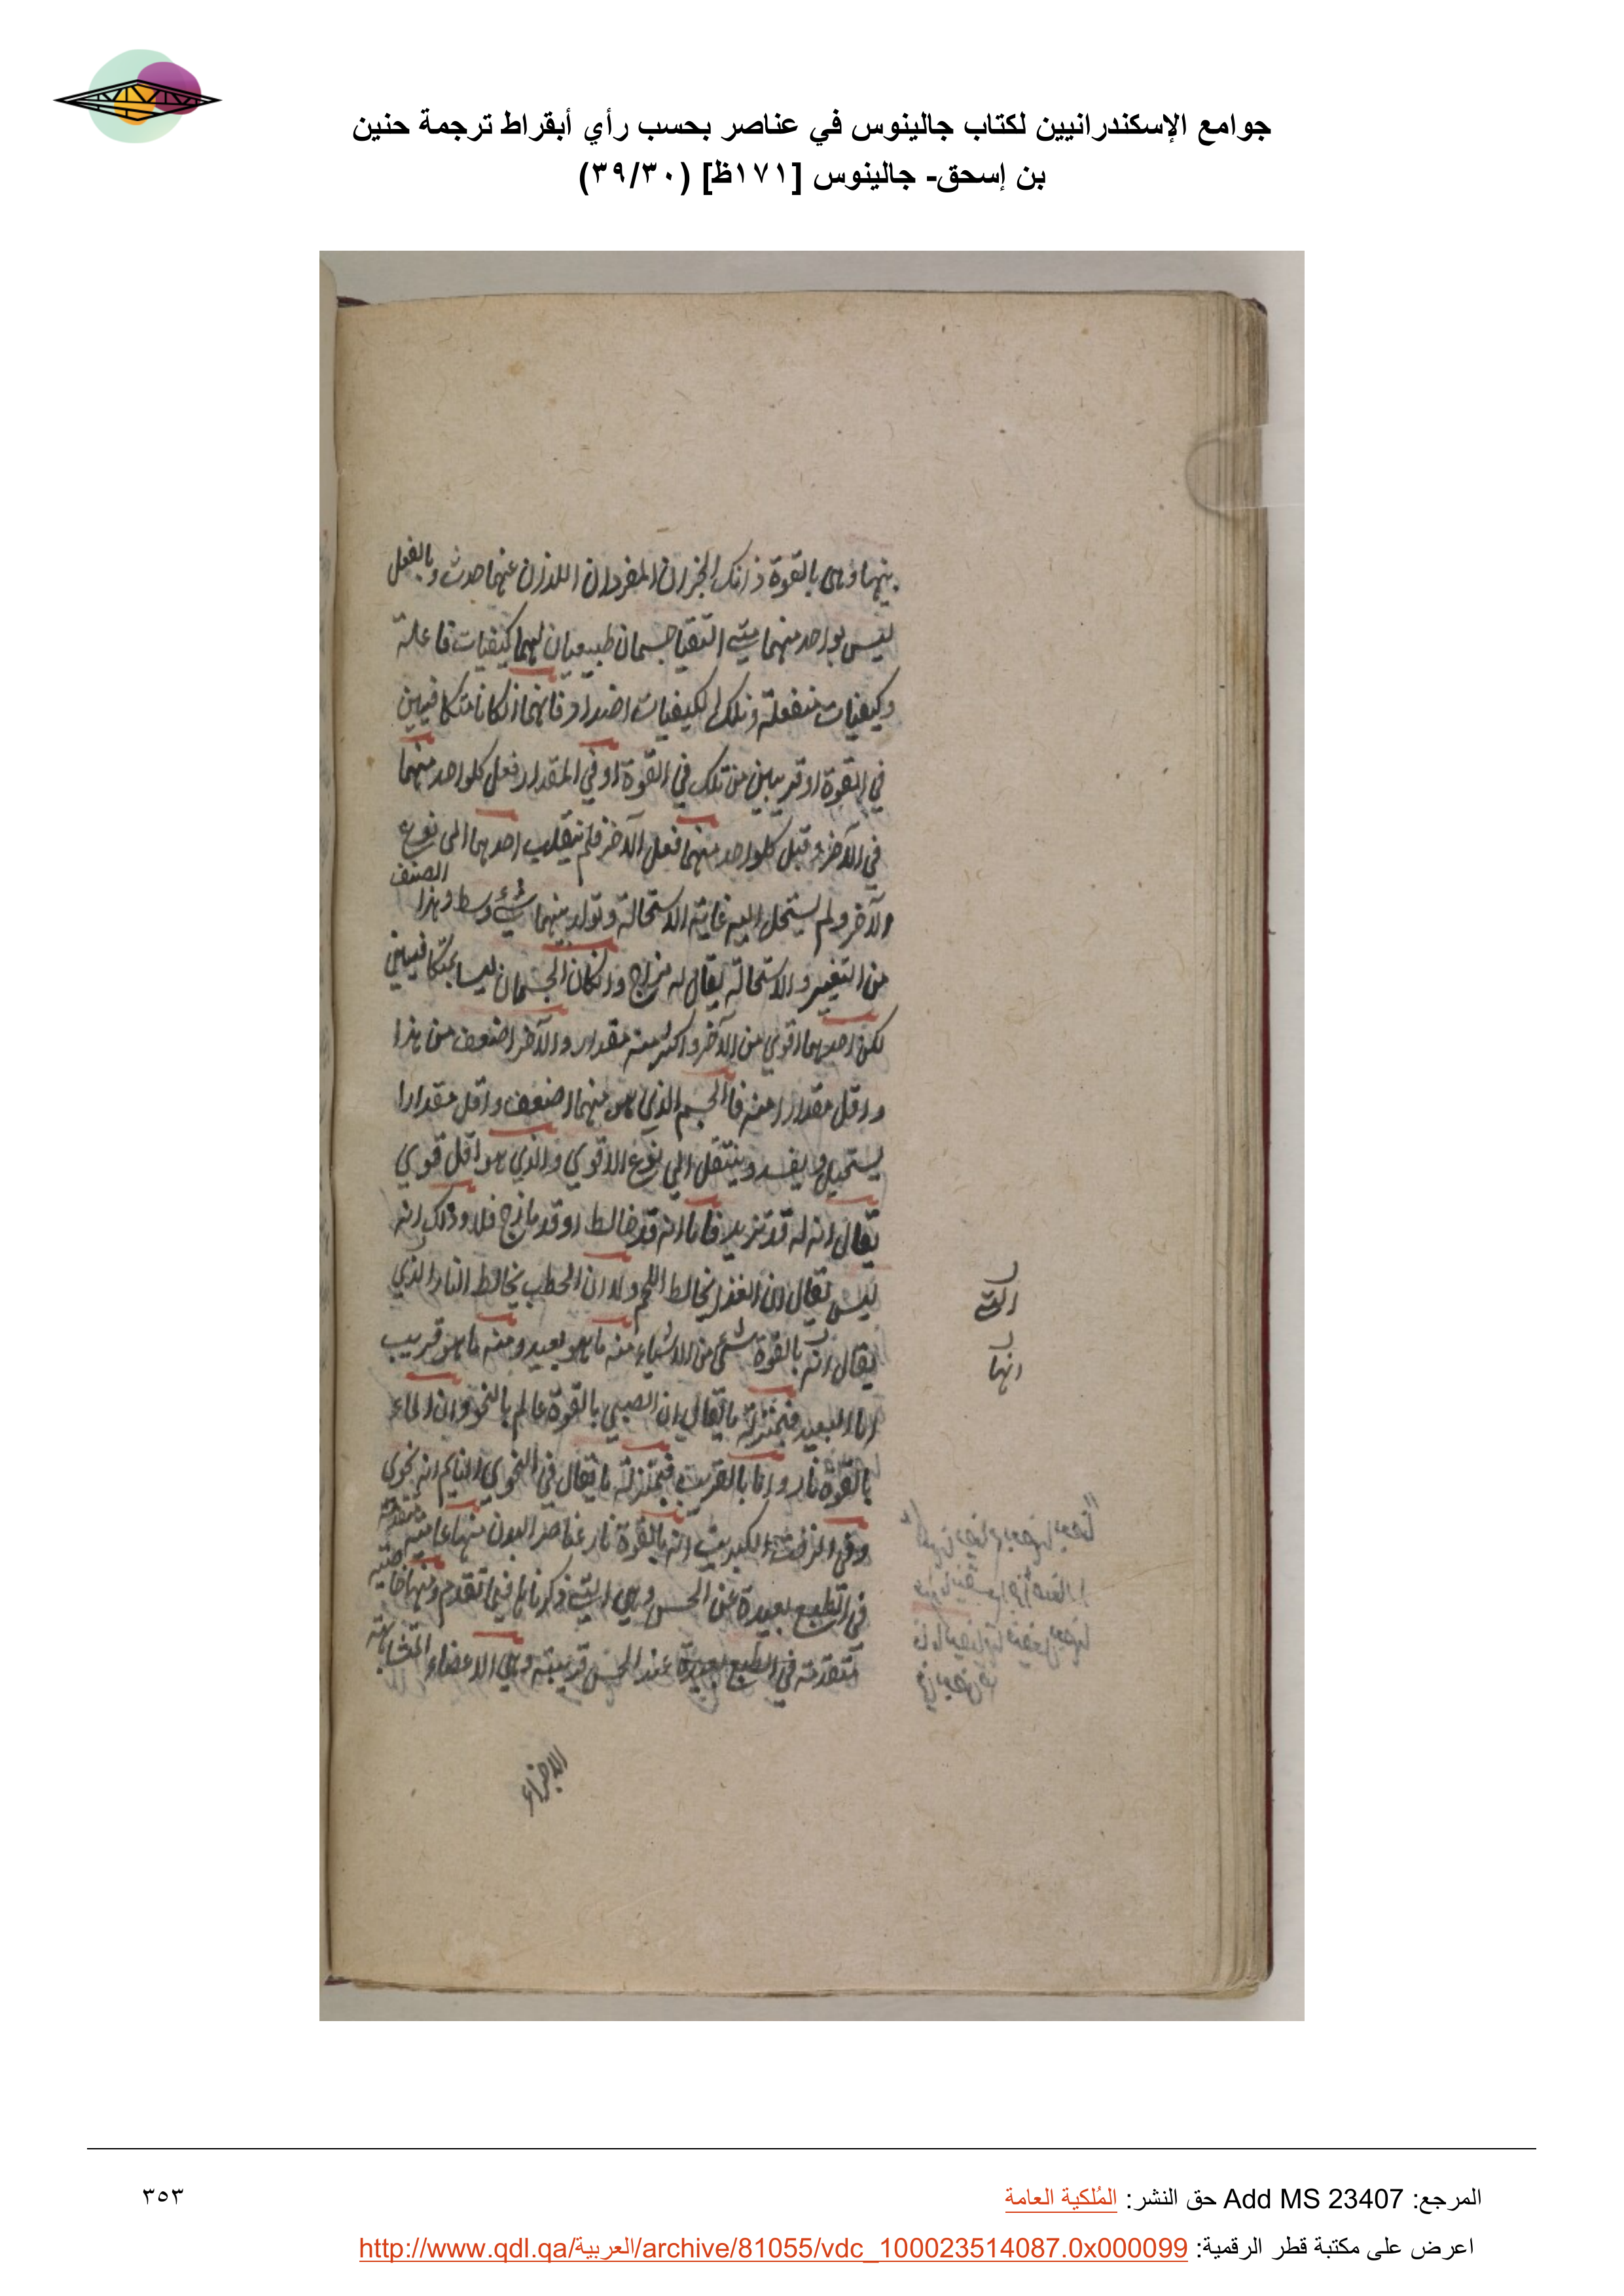 جوامع الإسكندرانيين لكتاب جالينوس في عناصر بحسب رأي أبقراط ترجمة حنين
بن إسحق- جالينوس [١٧١ظ] (٣٩/٣٠)
بينهما وهى بالقوة ذانك الجزان المفردان اللذان عنهما حدث وبالفعل
ليس بواحد منهما متى التقيا جسمان طبيعيان لهما كيفيات فاعلة
وكيفيات منفعلة وتلك الكيفيات اضداد فانهما انكانا متكافيين
في القوة او قريبين من تلك في القوة او في المقدار فعل كلواحد منهما
في الآخر وقبل كلواحد منهما فعل الآخر فلم ينقلب احدهما الى نوع
الآخر ولم يستحل اليه غاية الاستحالة وتولد بينهما شئ وسط وهذا الصنف
من التغيير والاستحالة يقال له مزاج وانكان الجسمان ليسا بمتكافيين
لكن احدهما اقوي من الآخر واكثر منه مقدار والآخر اضعف من هذا
واقل مقدارا منه فالجسم الذي هو منهما اضعف واقل مقدارا
يستحيل ويفسد وينتقل الي نوع الاقوي والذي هو اقل قوي
يقال انه له قد تزيد فاما انه قد خالط او قد مازج فلا وذلك انه
ليس يقال ان الغذا يخالط اللحم ولا ان الحطب يخالط النار الذي
يقال انه بالقوة شئ من الاشياء منه ما هو بعيد ومنه ما هو قريب
اما البعيد فبمنزلة ما يقال ان الصبي بالقوة عالم بالنحو وان الماء
بالقوة نار واما بالقريب فبمنزلة ما يقال في النحوي النايم انه نحوي
وفي الزفت والكبريت انه بالقوة نار عناصر البدن منها عامية متقدمة
في الطبع بعيدة عن الحس وهي التي ذكرناها فيما تقدم ومنها خاصية
متقدمة في الطبع بعيدة عند الحس قريبة وهي الاعضاء المتشابهة
الاجزاء
التي
انها
المرجع: Add MS 23407 حق النشر: المُلكية العامة
٣٥٣
اعرض على مكتبة قطر الرقمية: http://www.qdl.qa/العربية/archive/81055/vdc_100023514087.0x000099